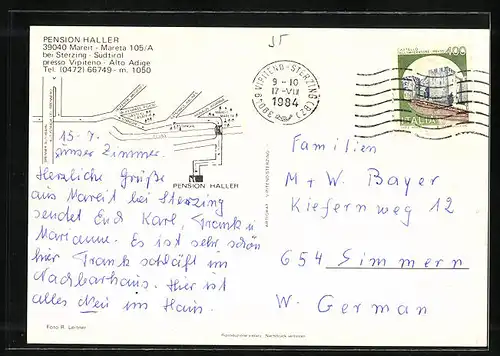 PENSION HALLER
39040 Mareit - Mareta 105/A
bei Sterzing - Südtirol
presso Vipiteno - Alto Adige
Tel. (0472) 66749 - m. 1050
15
39049 VIPITENO - STERZING (BZ)
9 - 10
17 - VII
1984
400
ITALIA
15.7.
unser Zimmer.
PENSION HALLER
Herzliche Grüße
aus Mareit bei Sterzing
sendet Euch Karl, Frank u
Marianne. Es ist sehr schön
hier Frank schläft im
Nachbarhaus. Hier ist
alles Neu im Haus.
Familien
M + W. Bayer
Kiefernweg 12
654 Simmern
W. German
Foto R. Leitner